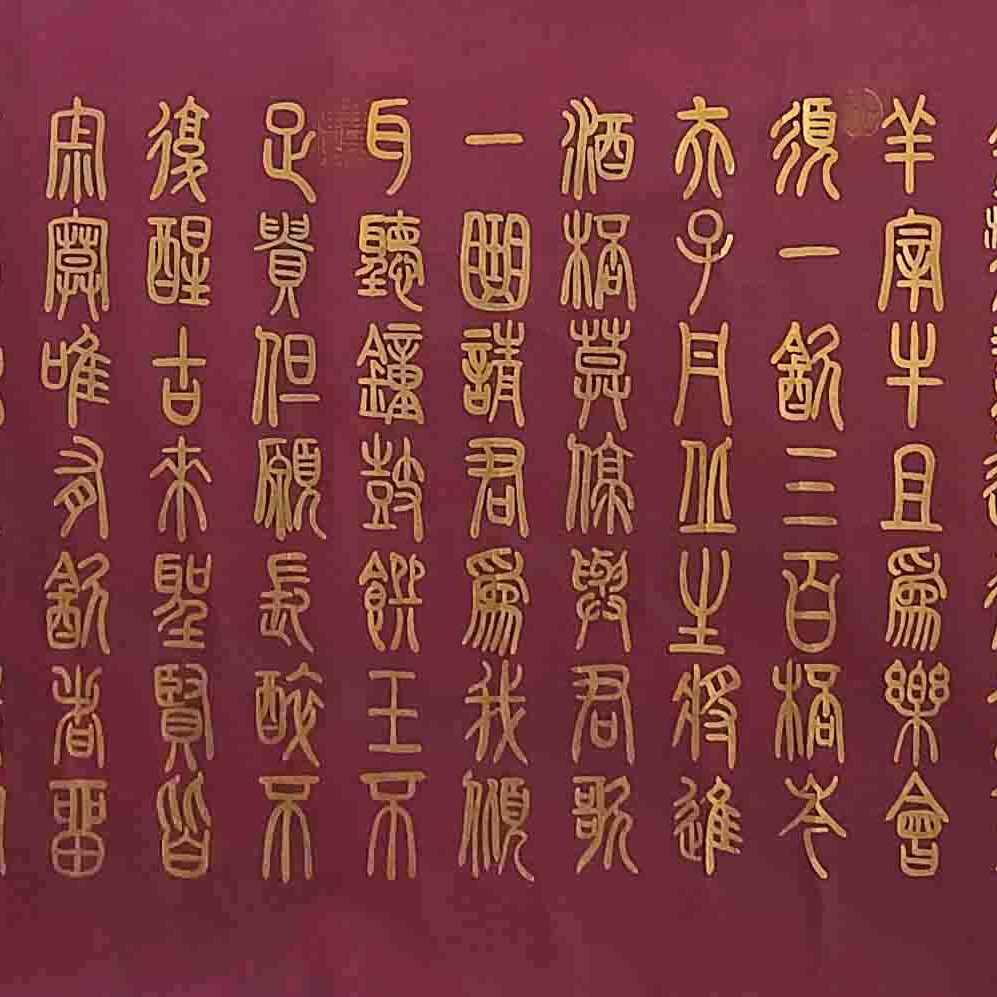 羊宰牛且為樂會
須一飲三百桮岑
夫子丹丘生將進
酒桮莫停與君歌
一曲請君為我傾
耳聽鐘鼓饌玉不
足貴但願長醉不
復醒古來聖賢皆
寂寞唯有飲者留